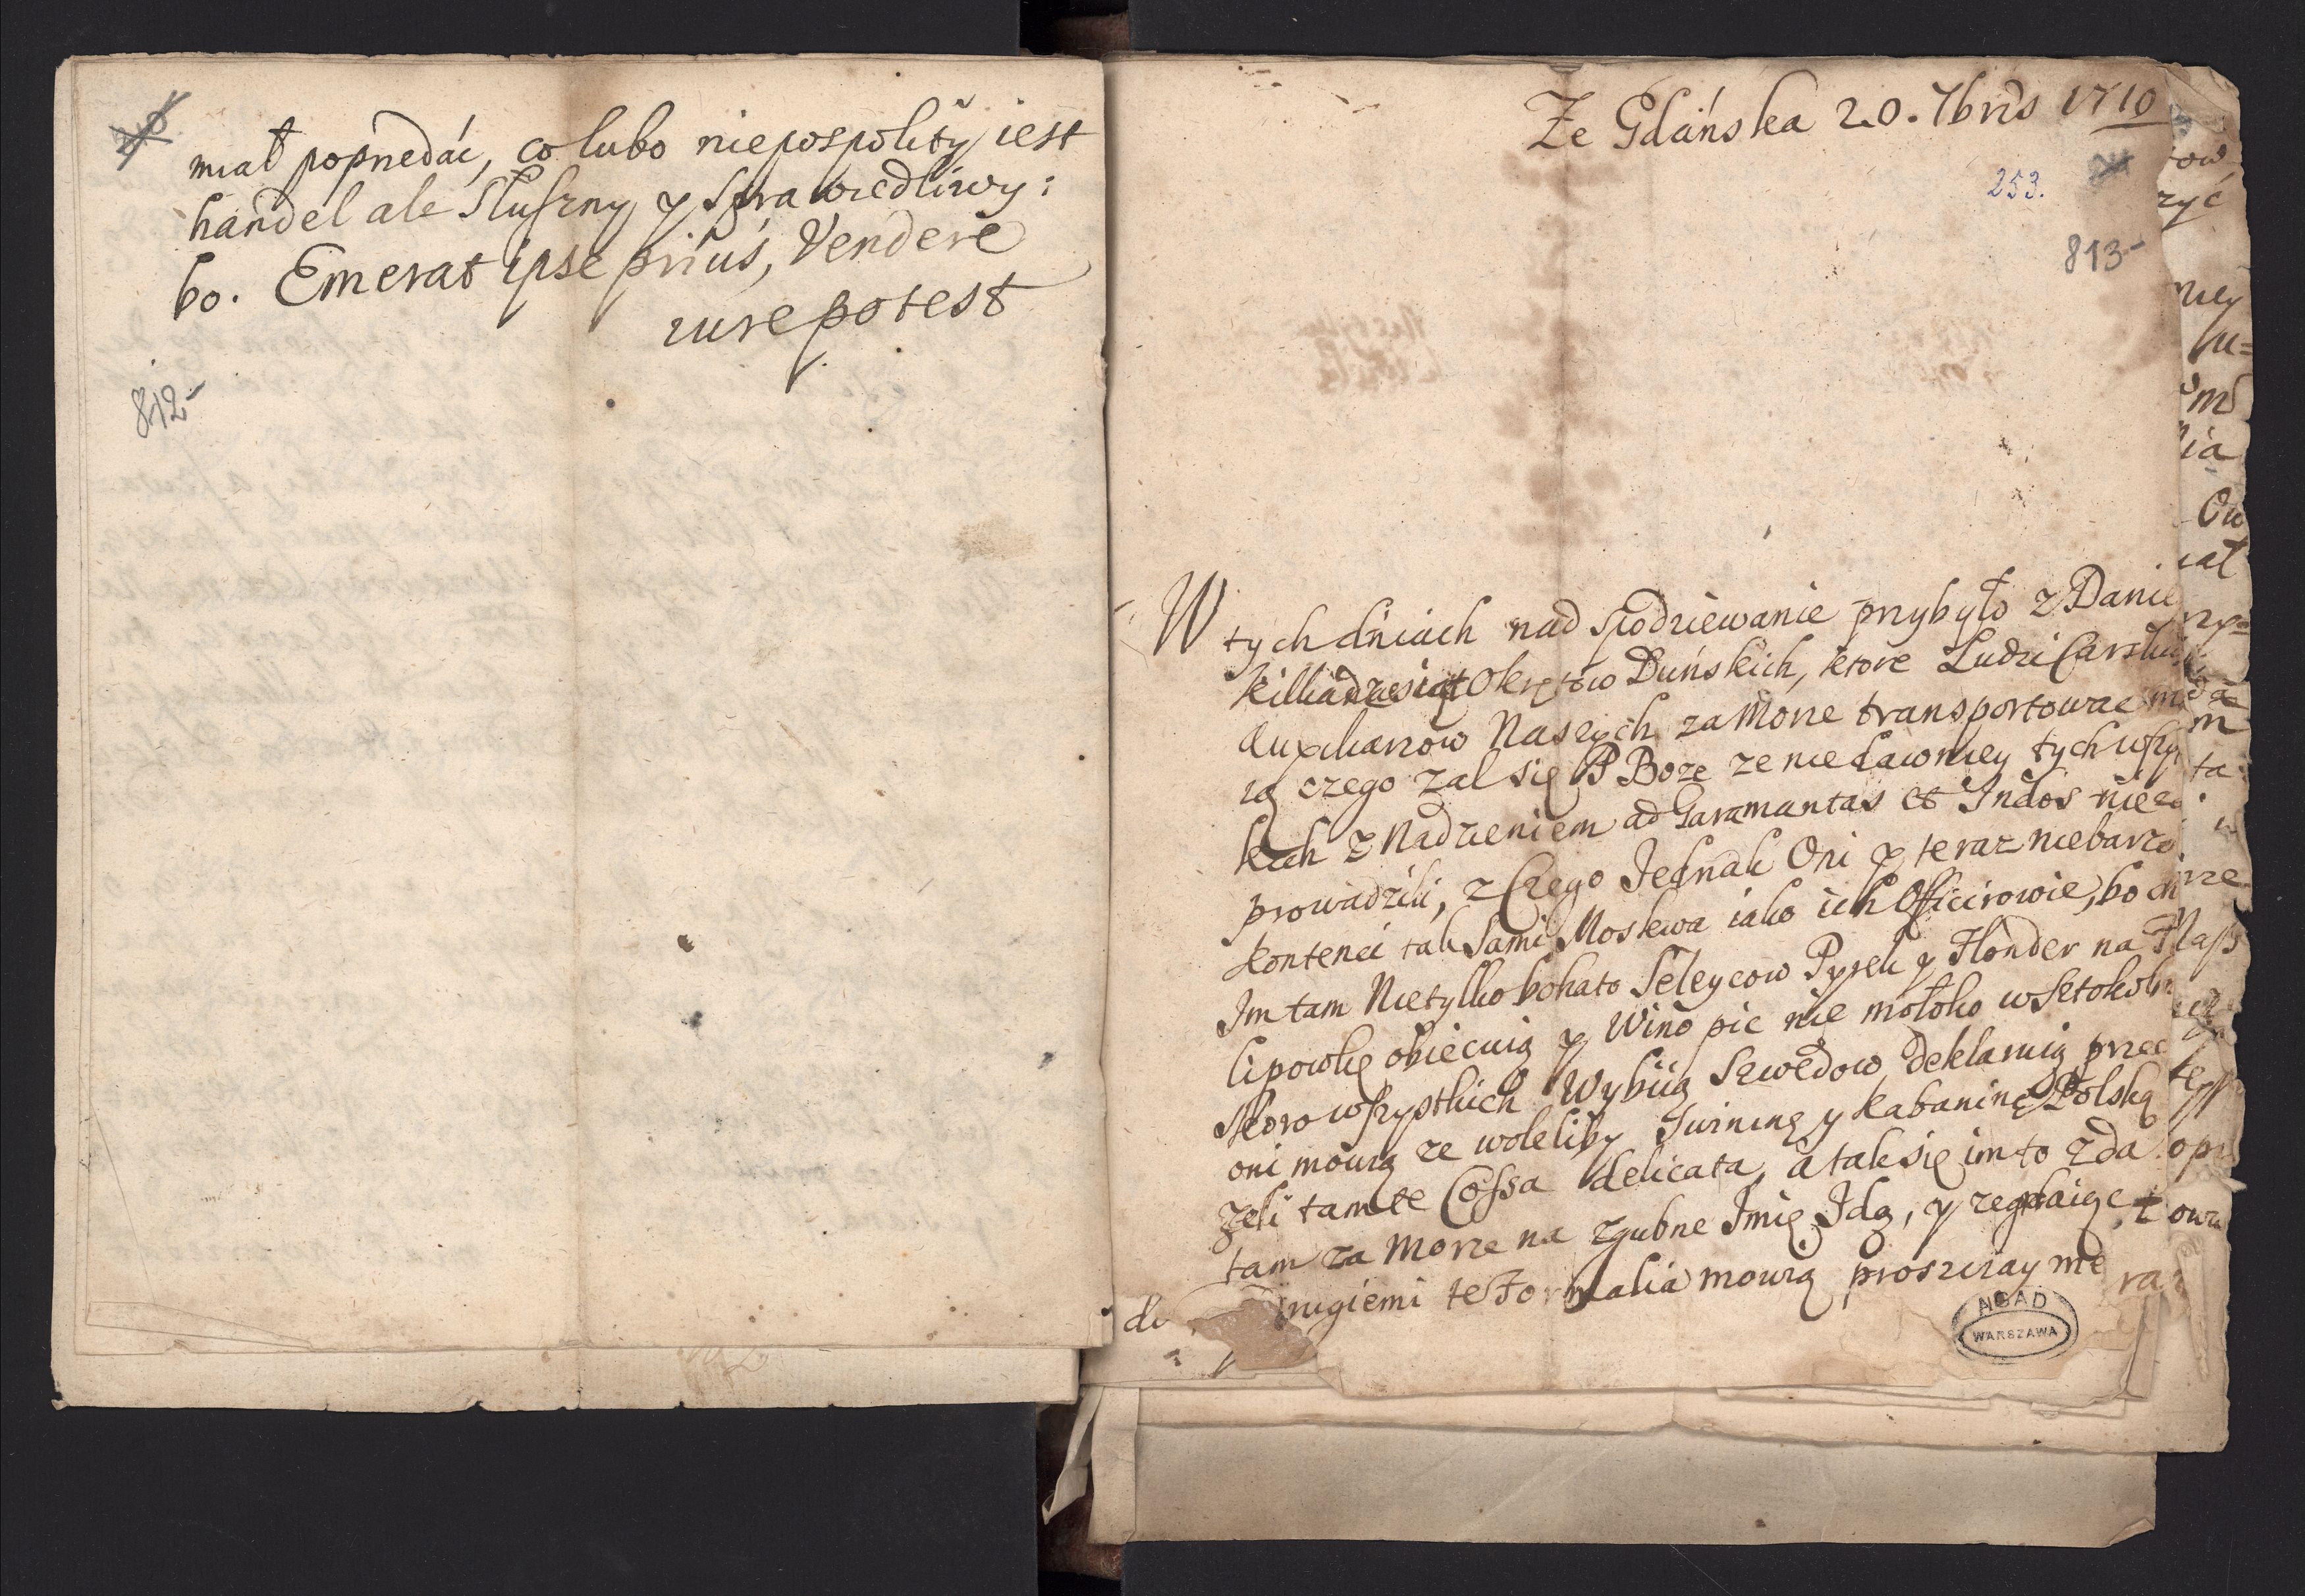 miał poprzedać, co lubo niepospolity iest
handel ale Słuszny y Sprawiedliwy:
bo. Emerat ipse prius, Vendere
iure potest
812-
Ze Gdańska 20. 7bris 1710
253.
813-
W tych dniach nad spodziewanie przybyło z Danie
killkadziesiąt Okrętow Duńskich, ktore Ludzi Carskich
Auxiliarzow Naszych za Morze transportowac ma
ią czego zal się P Boze ze nie dawniey tych wszy
kich z Nadzieniem ad Garamantas et Indos nie
prowadzili, z Czego Jednak Oni y teraz niebarzo
kontenci tak Sami Moskwa iako ich Officirowie, bo
Im tam Nietylko bohato Seleycow Pysek y Flonder na
lipowkę obiecuią y Wino pic nie mołoko w Sztokol
skoro wszystkich Wybiią Szwedow, deklaruią przec
oni mowią ze woleliby Swininę y kabaninę Polską
zeli tamte Cossa delicata, a tak się im to zda
tam za Morze na zgubne Imię Idą, y zegnaiąc
drugiemi te Formalia mowią proszczay me
AGAD
WARSZAWA